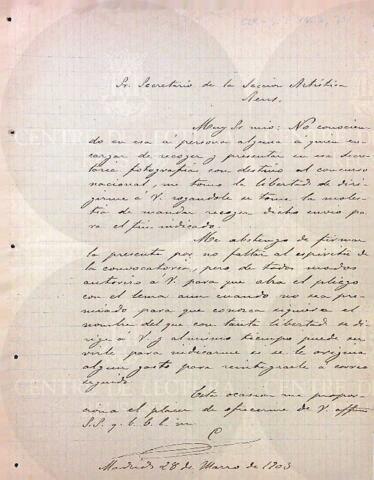 Sr. Secretario de la Seccion Artistica
Reus.
Muy Sr mio: No conocien-
do en esa á persona alguna á quien en-
cargar de recojer y presentar en esa Secre-
taria fotografias con destino al concurso
nacional, me tomo la libertad de diri-
girme á V. rogandole se tome la moles-
tia de mandar recojer dicho envio pa-
ra el fin indicado.
Me abstengo de firmar
la presente por no faltar al espiritu de
la convocatoria, pero de todos modos
autorizo á V. para que abra el pliego
con el lema aun cuando no sea pre-
miado para que conozca siquiera el
nombre del que con tanta libertad se di-
rige á V. y al mismo tiempo pueda ser-
virle para indicarme si se le origina
algun gasto para reintegrarle á correo
seguido.
Esta ocasion me propor-
ciona el placer de ofrecerme de V. affmo
S.S. q. b. s. m.
Madrid 28 de Marzo de 1903
CENTRE DE LECTURA
CENTRE DE LECTURA
CENTRE DE